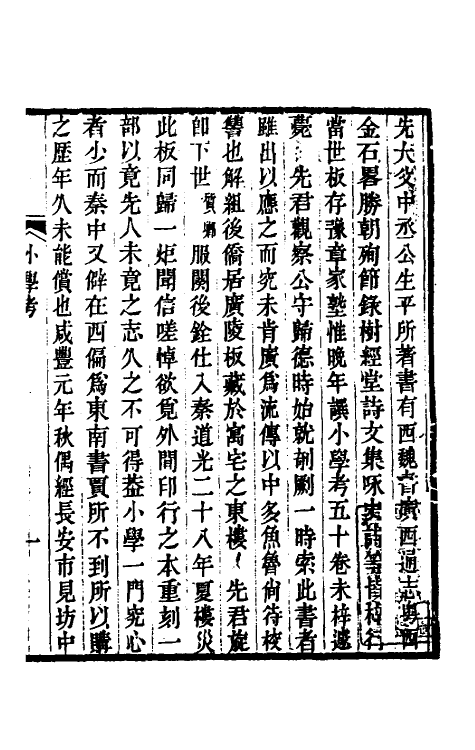 先大父中丞公生平所著書有西魏書廣西通志粵西
金石畧勝朝殉節錄樹經堂詩文集咏史詩等皆梓行
當世板存豫章家塾惟晚年譔小學考五十卷未梓遽
薨 先君觀察公守歸德時始就剞劂一時索此書者
雖出以應之而究未肯廣爲流傳以中多魚魯尙待校
讐也解組後僑居廣陵板藏於寓宅之東樓 先君旋
卽下世質卿服闋後銓仕入秦道光二十八年夏樓災
此板同歸一炬聞信嗟悼欲覓外間印行之本重刻一
部以竟先人未竟之志久之不可得葢小學一門究心
者少而秦中又僻在西偏爲東南書賈所不到所以購
之歷年久未能償也咸豐元年秋偶經長安市見坊中
小學考
一